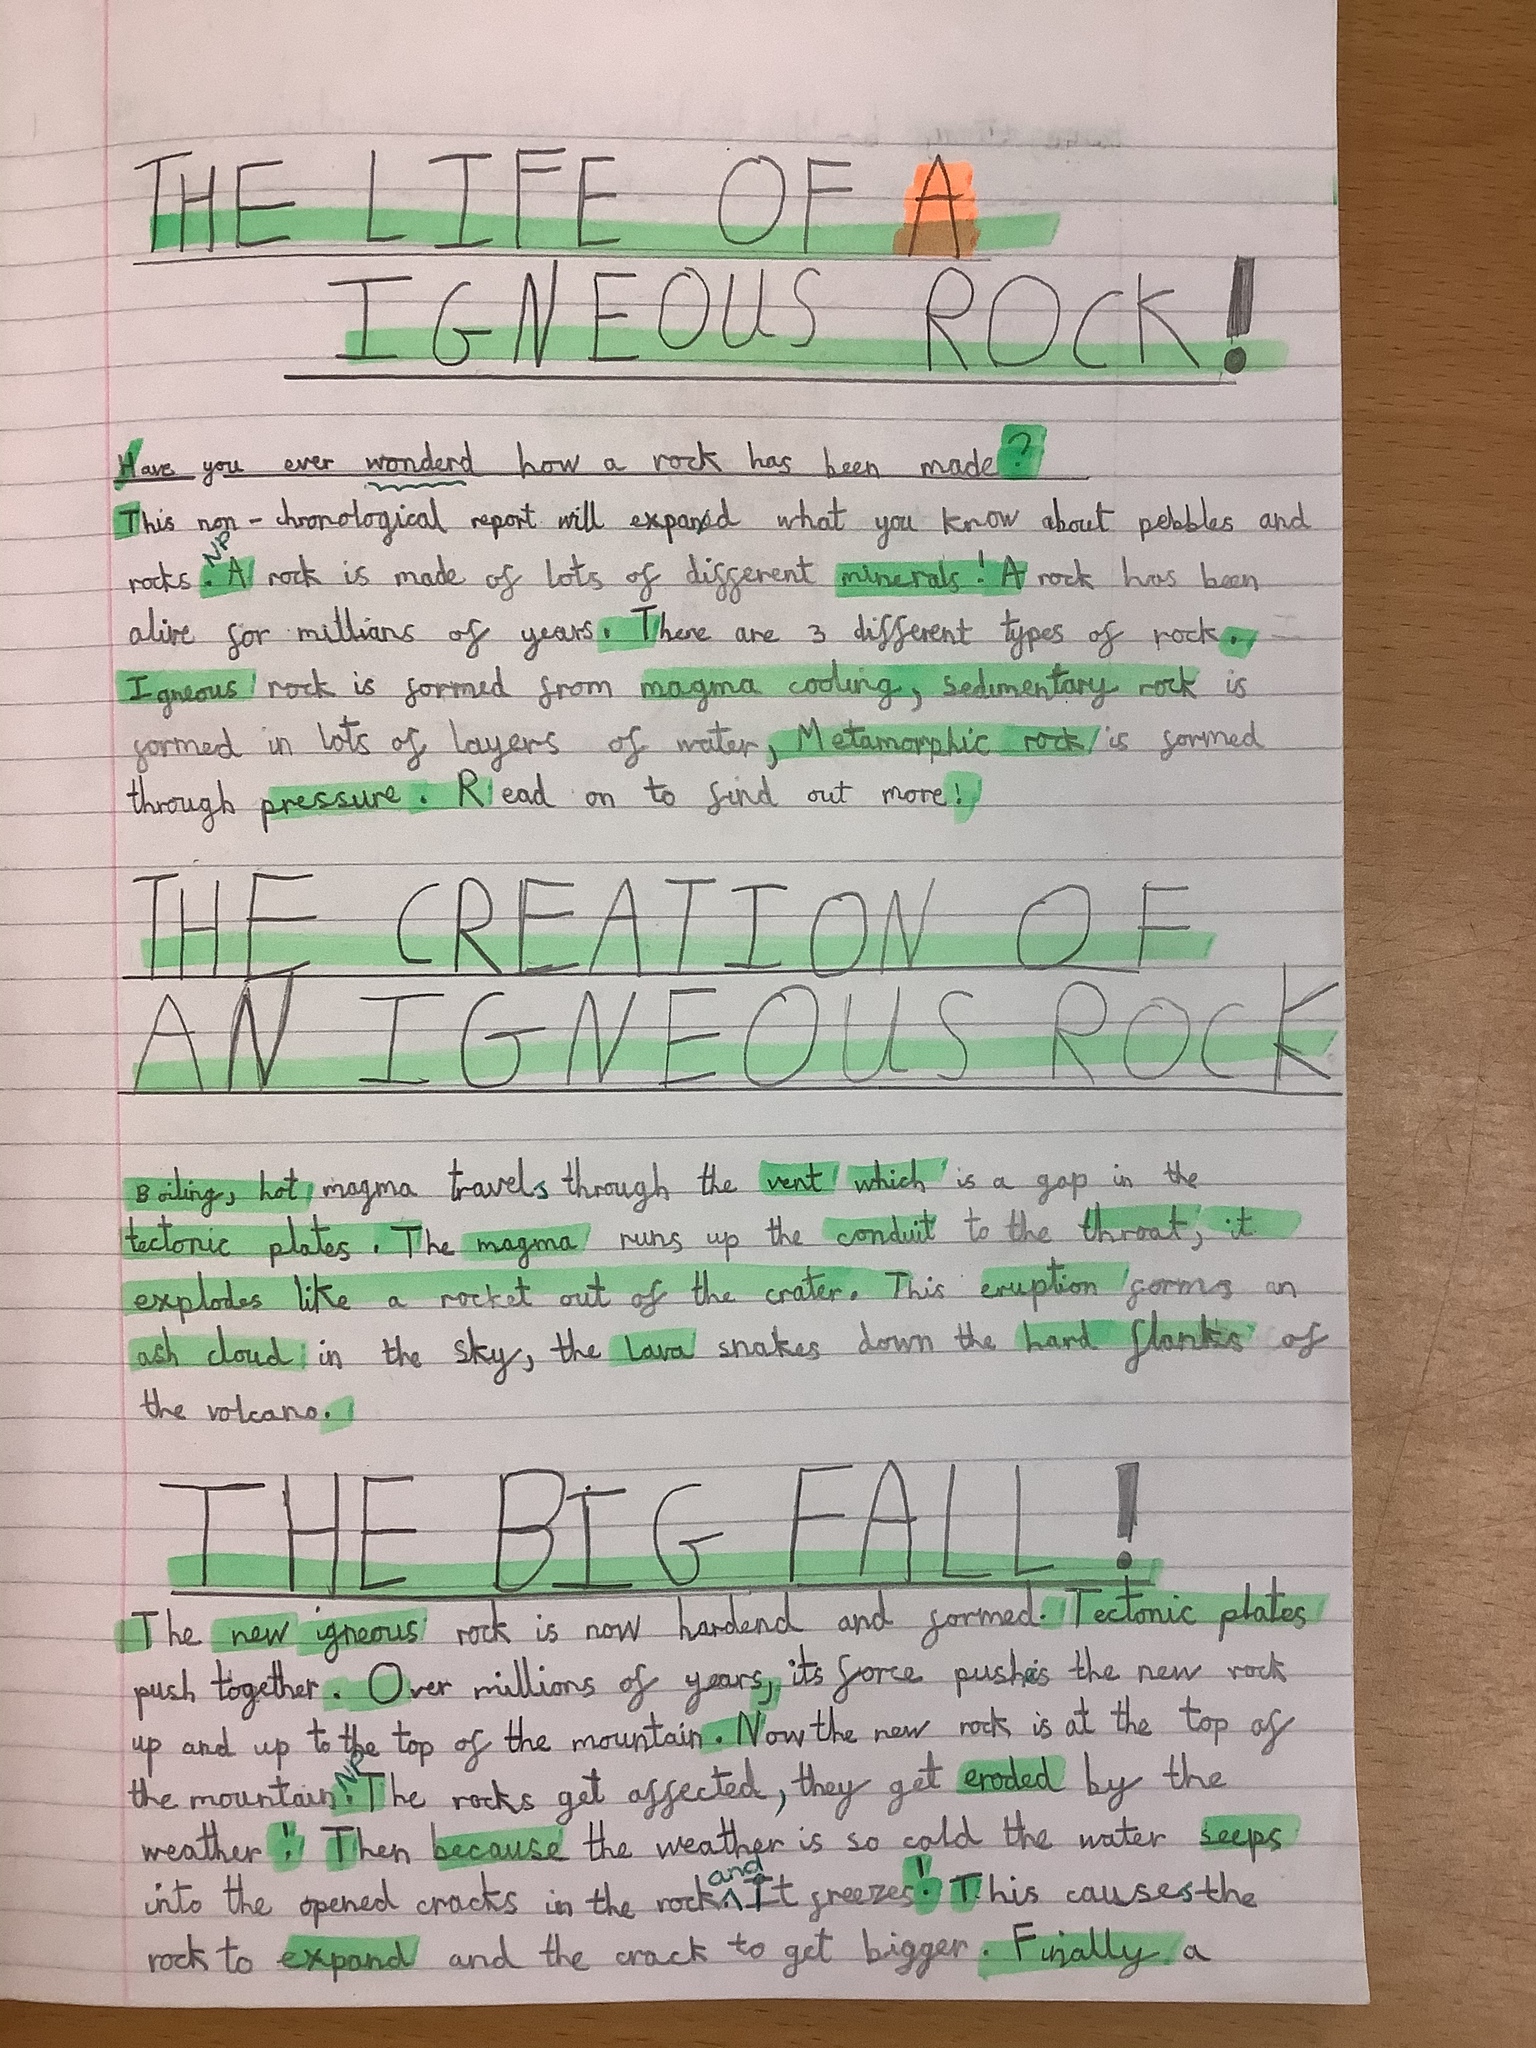 THE LIFE OF A
IGNEOUS ROCK!
Have you ever wonderd how a rock has been made?
This non-chronological report will expand what you know about pebbles and
NP
rocks. A rock is made of lots of different minerals! A rock has been
alive for millians of years. There are 3 different types of rock.
Igneous rock is formed from magma cooling, sedimentary rock is
formed in lots of layers of water, Metamorphic rock is formed
through pressure. Read on to find out more!
THE CREATION OF
AN IGNEOUS ROCK
Boiling, hot magma travels through the vent which is a gap in the
tectonic plates. The magma runs up the conduit to the throat, it
explodes like a rocket out of the crater. This eruption forms an
ash cloud in the sky, the lava snakes down the hard flanks of
the volcano.
THE BIG FALL!
The new igneous rock is now hardend and formed. Tectonic plates
push together. Over millions of years, its force pushes the new rock
up and up to the top of the mountain. Now the new rock is at the top of
NP
the mountain. The rocks get affected, they get eroded by the
weather! Then because the weather is so cold the water seeps
and
into the opened cracks in the rock. It freezes! This causes the
rock to expand and the crack to get bigger. Finally a